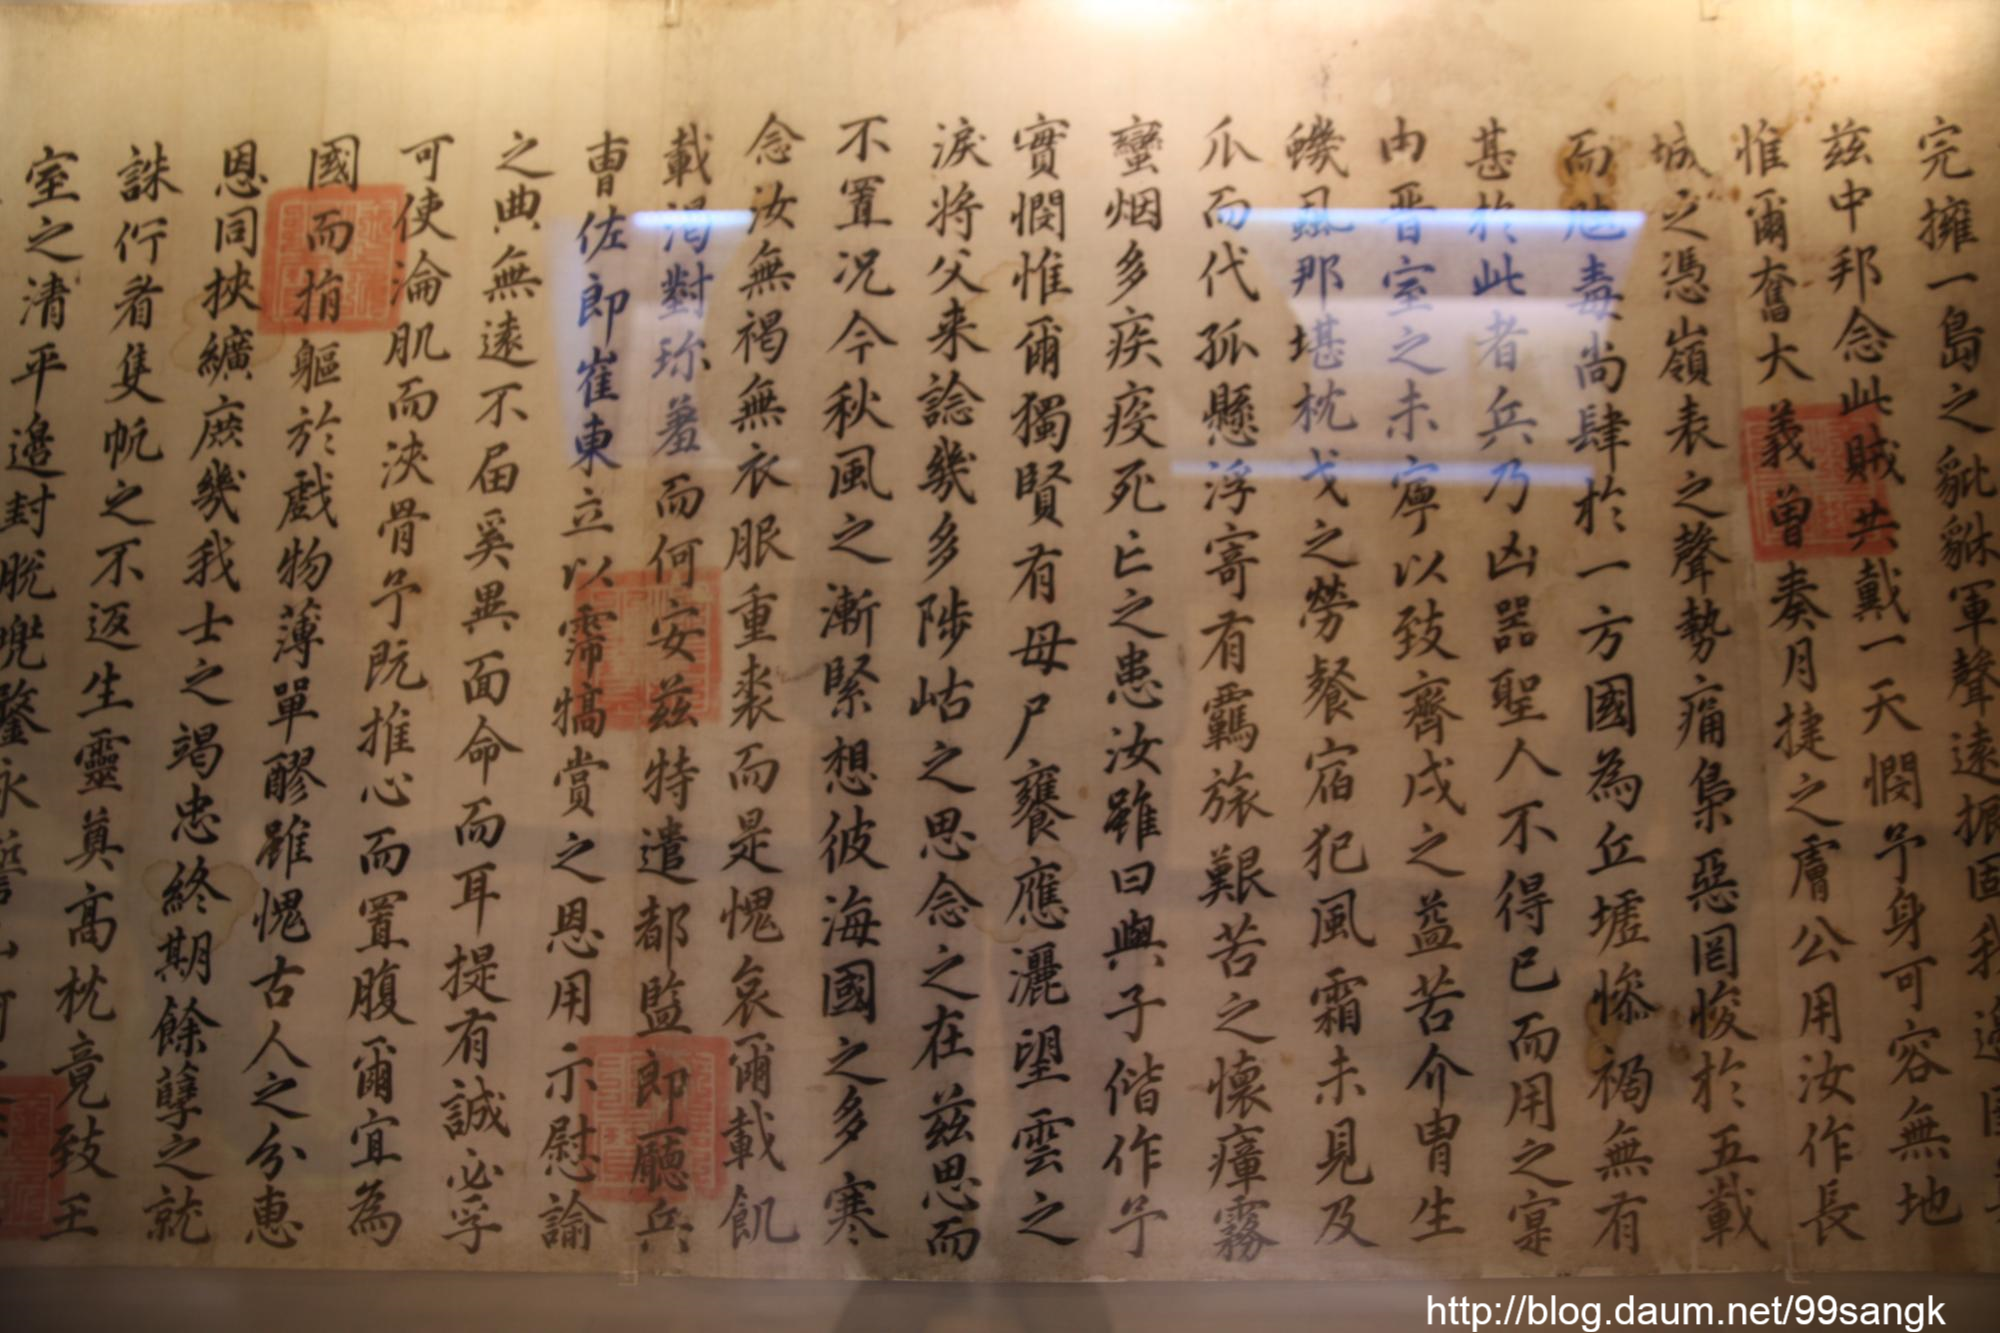 完擁一島之貔貅軍聲遠振固我邊圉
兹中邦念此賊共戴一天憫予身可容無地
惟爾奮大義曾奏月捷之膚公用汝作長
城之憑嶺表之聲勢痛梟惡罔悛於五載
而虺毒尚肆於一方國為丘墟慘禍無有
甚於此者兵乃凶器聖人不得已而用之寔
由晋室之未寧以致齊戍之益苦介胄生
蟣虱那堪枕戈之勞餐宿犯風霜未見及
瓜而代孤懸浮寄有羈旅艱苦之懷瘴霧
蠻烟多疾疫死亡之患汝雖曰與子偕作予
實憫惟爾獨賢有母尸饔應灑望雲之
淚将父来諗幾多陟岵之思念之在兹思而
不置况今秋風之漸緊想彼海國之多寒
念汝無褐無衣服重裘而是愧哀爾載飢
載渴對珎羞而何安兹特遣都監郎廳兵
曺佐郎崔東立以霈犒賞之恩用示慰諭
之典無遠不届奚異面命而耳提有誠必孚
可使淪肌而浹骨予既推心而置腹爾宜為
國而捐軀於戲物薄單醪雖愧古人之分惠
恩同挾纊庶幾我士之竭忠終期餘孽之就
誅佇看隻帆之不返生靈奠髙枕竟致王
室之清平邊封脫兜鍪永
http://blog.daum.net/99sangk